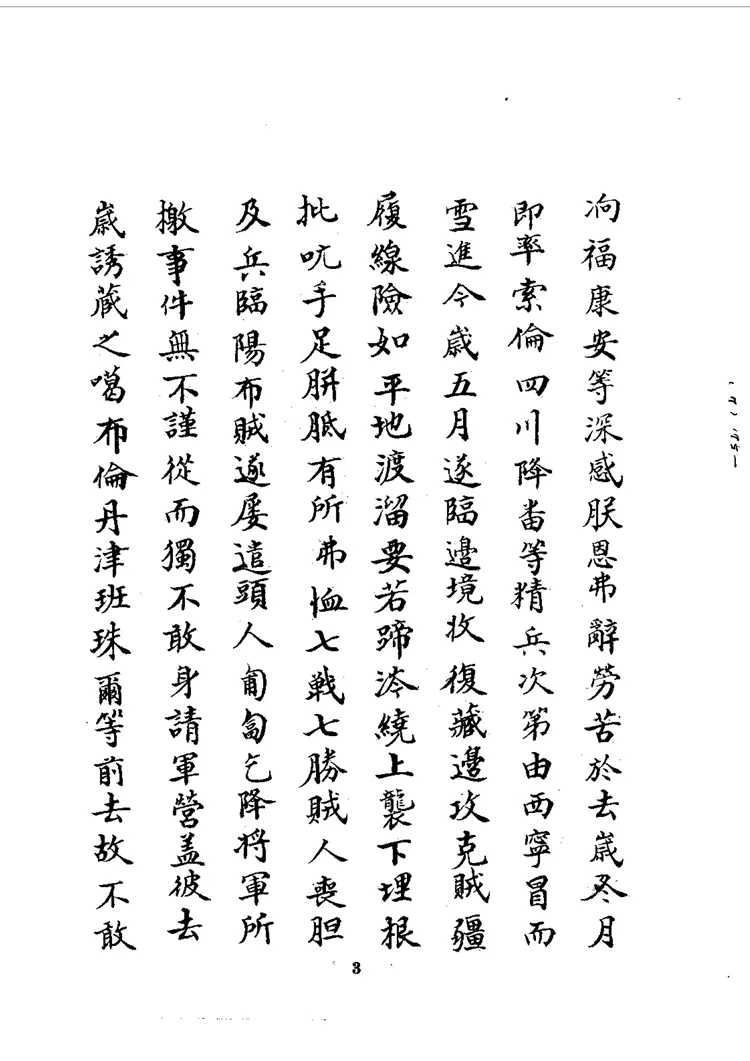 福康安等深感朕恩弗辭勞苦於去歲冬月
即率索倫四川降畨等精兵次第由西寧冒而
雪進今歲五月遂臨邊境收復藏邊攻克賊疆
履線險如平地渡溜要若蹄涔繞上襲下埋根
批吭手足胼胝有所弗恤七戰七勝賊人喪胆
及兵臨陽布賊遂屡遣頭人匍匐乞降将軍所
檄事件無不謹從而獨不敢身請軍營盖彼去
歲誘藏之噶布倫丹津班珠爾等前去故不敢
3